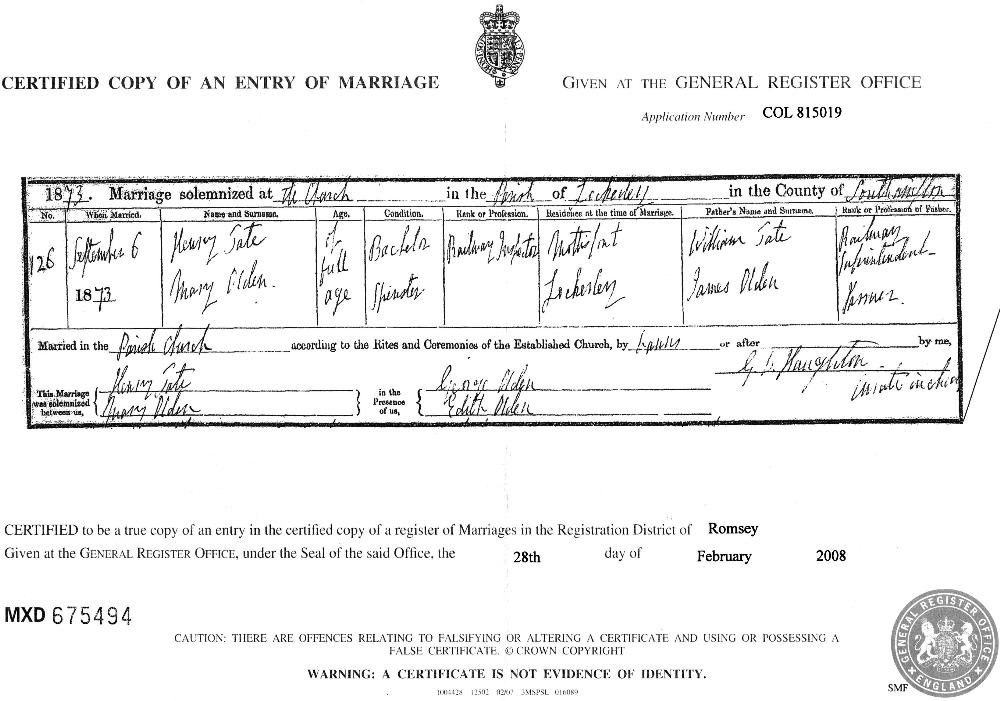 CERTIFIED COPY OF AN ENTRY OF MARRIAGE
GIVEN AT THE GENERAL REGISTER OFFICE
Application Number COL 815019
1873. Marriage solemnized at The Church in the Parish of Lockerley in the County of Southampton
No. When Married. Name and Surname. Age. Condition. Rank or Profession. Residence at the time of Marriage. Father's Name and Surname. Rank or Profession of Father.
126 September 6 1873 Henry Tate of full age Bachelor Railway Inspector Mottisfont William Tate Railway Superintendent
Mary Olden Spinster Lockerley James Olden Farmer.
Married in the Parish Church according to the Rites and Ceremonies of the Established Church, by Banns or after by me,
G D Haughton
This Marriage was solemnized between us, { Henry Tate Mary Olden } in the Presence of us, { George Olden Edith Olden
CERTIFIED to be a true copy of an entry in the certified copy of a register of Marriages in the Registration District of Romsey
Given at the GENERAL REGISTER OFFICE, under the Seal of the said Office, the 28th day of February 2008
MXD 675494
CAUTION: THERE ARE OFFENCES RELATING TO FALSIFYING OR ALTERING A CERTIFICATE AND USING OR POSSESSING A
FALSE CERTIFICATE. © CROWN COPYRIGHT
WARNING: A CERTIFICATE IS NOT EVIDENCE OF IDENTITY.
1004428 12502 02/07 3MSPSL 016089
SMF
GENERAL REGISTER OFFICE
ENGLAND